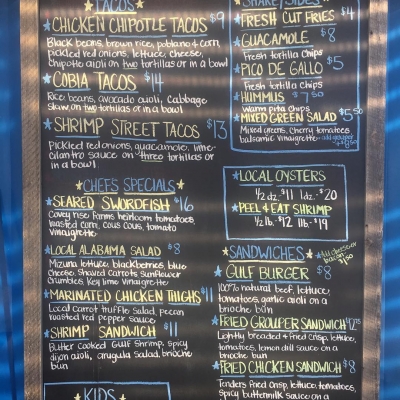 TACOS
CHICKEN CHIPOTLE TACOS $9
Black beans, brown rice, poblano & corn,
pickled red onions, lettuce, cheese,
chipotle aioli on two tortillas or in a bowl
COBIA TACOS $14
Rice, beans, avocado aioli, cabbage
slaw on two tortillas or in a bowl
SHRIMP STREET TACOS $13
Pickled red onions, guacamole, lime-
cilantro sauce on three tortillas or
in a bowl
CHEF'S SPECIALS
SEARED SWORDFISH $16
Covey rise Farms heirloom tomatoes
roasted corn, cous cous, tomato
vinaigrette
LOCAL ALABAMA SALAD $8
Mizuna lettuce, blackberries, blue
cheese, shaved carrots, sunflower
crumbles, Key lime vinaigrette
MARINATED CHICKEN THIGHS $11
Local carrot truffle salad, pecan
roasted red pepper sauce
SHRIMP SANDWICH $11
Butter cooked Gulf shrimp, spicy
dijon aioli, arugula salad, brioche
bun
KIDS
SHARE/SIDES
FRESH CUT FRIES $4
GUACAMOLE $8
Fresh tortilla chips
PICO DE GALLO $5
Fresh tortilla chips
HUMMUS $7.50
Warm pita chips
MIXED GREEN SALAD $5.50
Mixed greens, cherry tomatoes
balsamic vinaigrette
LOCAL OYSTERS
1/2 dz. $11 1dz. $20
PEEL & EAT SHRIMP
1/2 lb. $12 1lb. $19
SANDWICHES
Add cheese or
bacon
$1.50
GULF BURGER $8
100% natural beef, lettuce,
tomatoes, garlic aioli on a
brioche bun
FRIED GROUPER SANDWICH
Lightly breaded & fried crisp, lettuce,
tomatoes, lemon dill sauce on a
brioche bun
FRIED CHICKEN SANDWICH $8
Tenders fried crisp, lettuce, tomatoes,
spicy buttermilk sauce on a